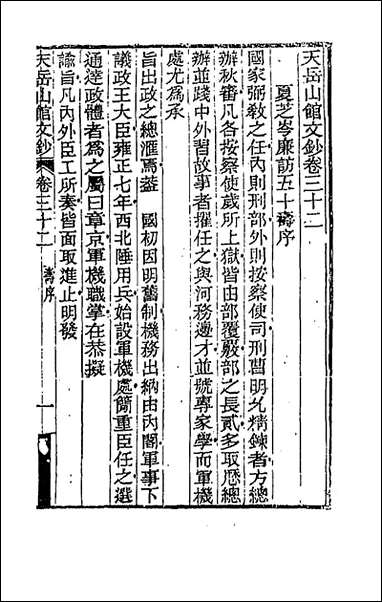 天岳山館文鈔卷三十二
夏芝岑廉訪五十壽序
國家弼敎之任內則刑部外則按察使司刑曹明允精鍊者方總
辦秋審凡各按察使歲所上獄皆由部覆覈部之長貳多取厯總
辦並踐中外習故事者擢任之與河務邊才並號專家學而軍機
處尤爲承
旨出政之總滙焉葢 國初因明舊制機務出納由內閣軍事下
議政王大臣雍正七年西北陲用兵始設軍機處簡重臣任之選
通達政體者爲之屬曰章京軍機職掌在恭擬
諭旨凡內外臣工所奏皆面取進止明發
天岳山館文鈔 卷三十二 壽序 一